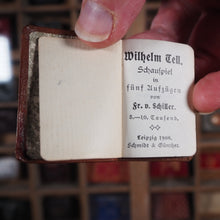 Wilhelm Tell.
Schauspiel
in
fünf Aufzügen
von
Fr. v. Schiller.
8.—10. Tausend.
Leipzig 1908.
Schmidt & Günther.